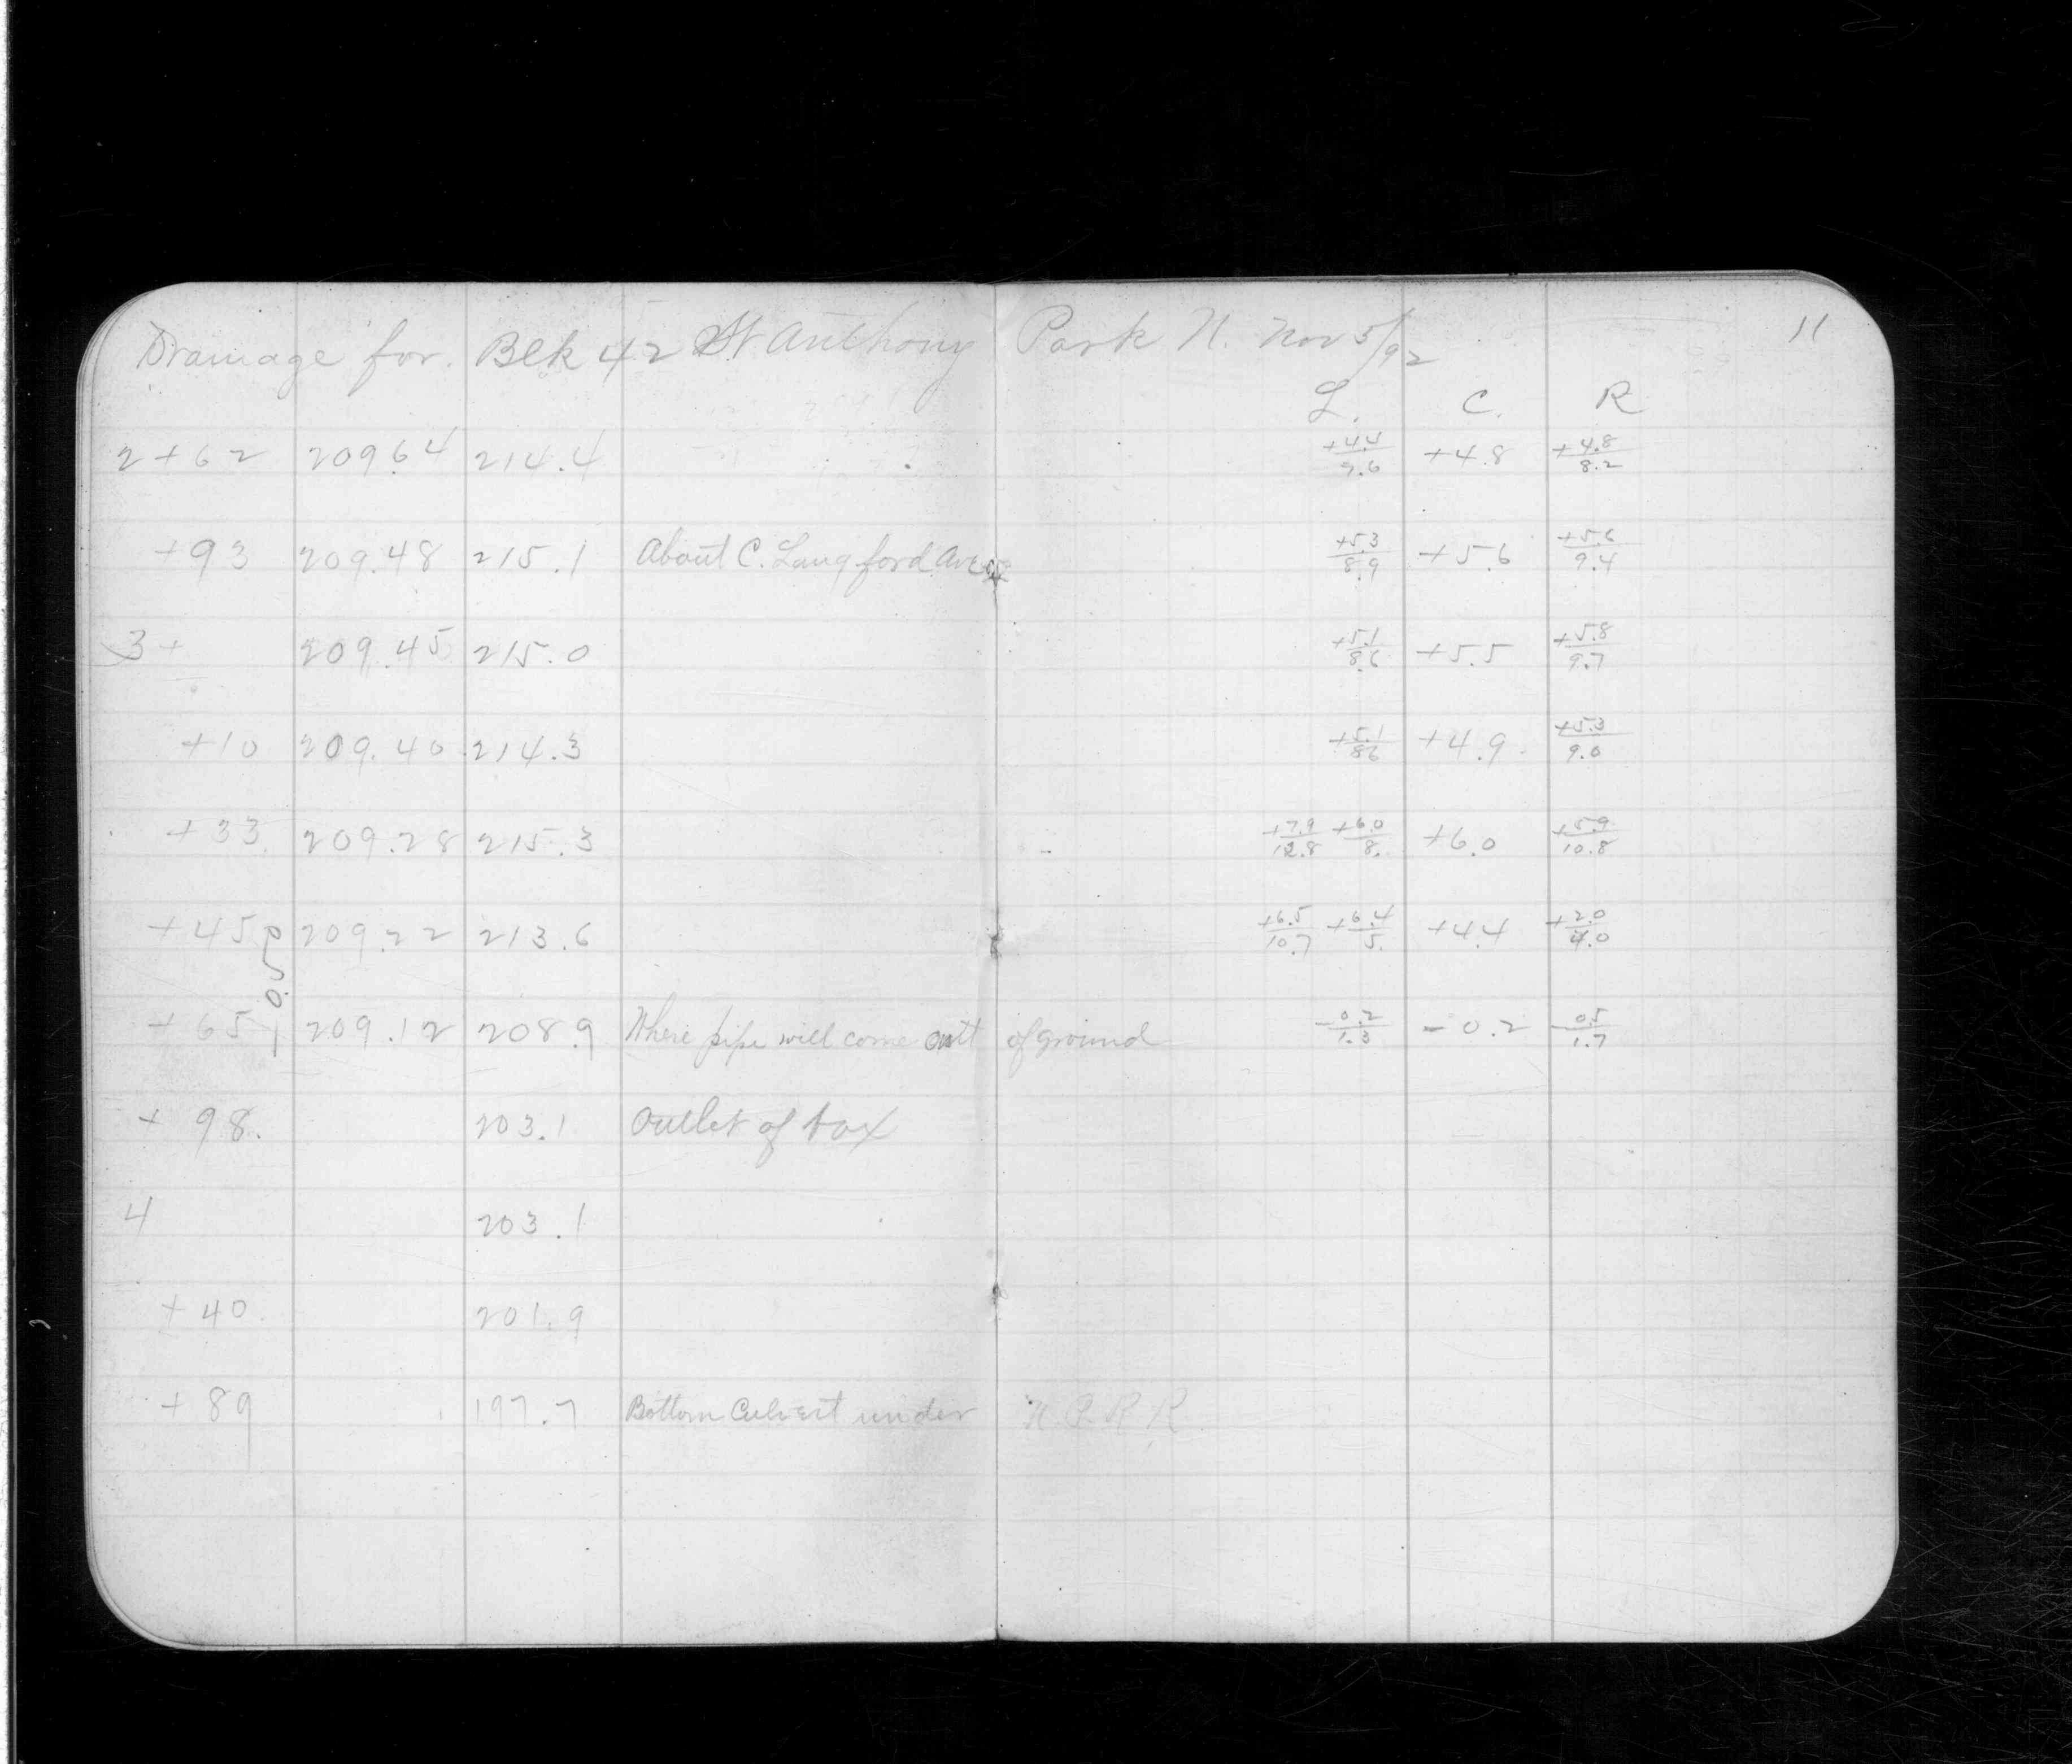 Drainage for. Blk 42 St Anthony Park N. Nov 5/92 11
L. C. R
2+62 209.64 214.4 +4.4/7.6 +4.8 +4.8/8.2
+93 209.48 215.1 About C. Langford Ave +5.3/8.9 +5.6 +5.6/9.4
3+ 209.45 215.0 +5.1/8.6 +5.5 +5.8/9.7
+10 209.40 214.3 +5.1/86 +4.9 +5.3/9.0
+33 209.28 215.3 +7.9/12.8 +6.0/8. +6.0 +5.9/10.8
+45 209.22 213.6 +6.5/10.7 +6.4/5. +4.4 +2.0/4.0
+65 209.12 208.9 Where pipe will come outt of ground -0.2/1.3 -0.2 -0.5/1.7
+98. 203.1 Outlet of box
4 203.1
+40. 201.9
+89 197.7 Bottom Culvert under N.P.R R.